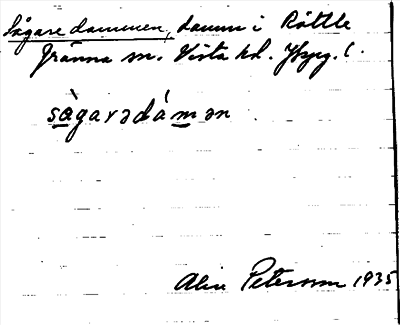 Sågaredammen, damm i Röttle
Gränna sn. Vista hd. Jkpg. l.
sàgarədámən
Alin Petersson 1935